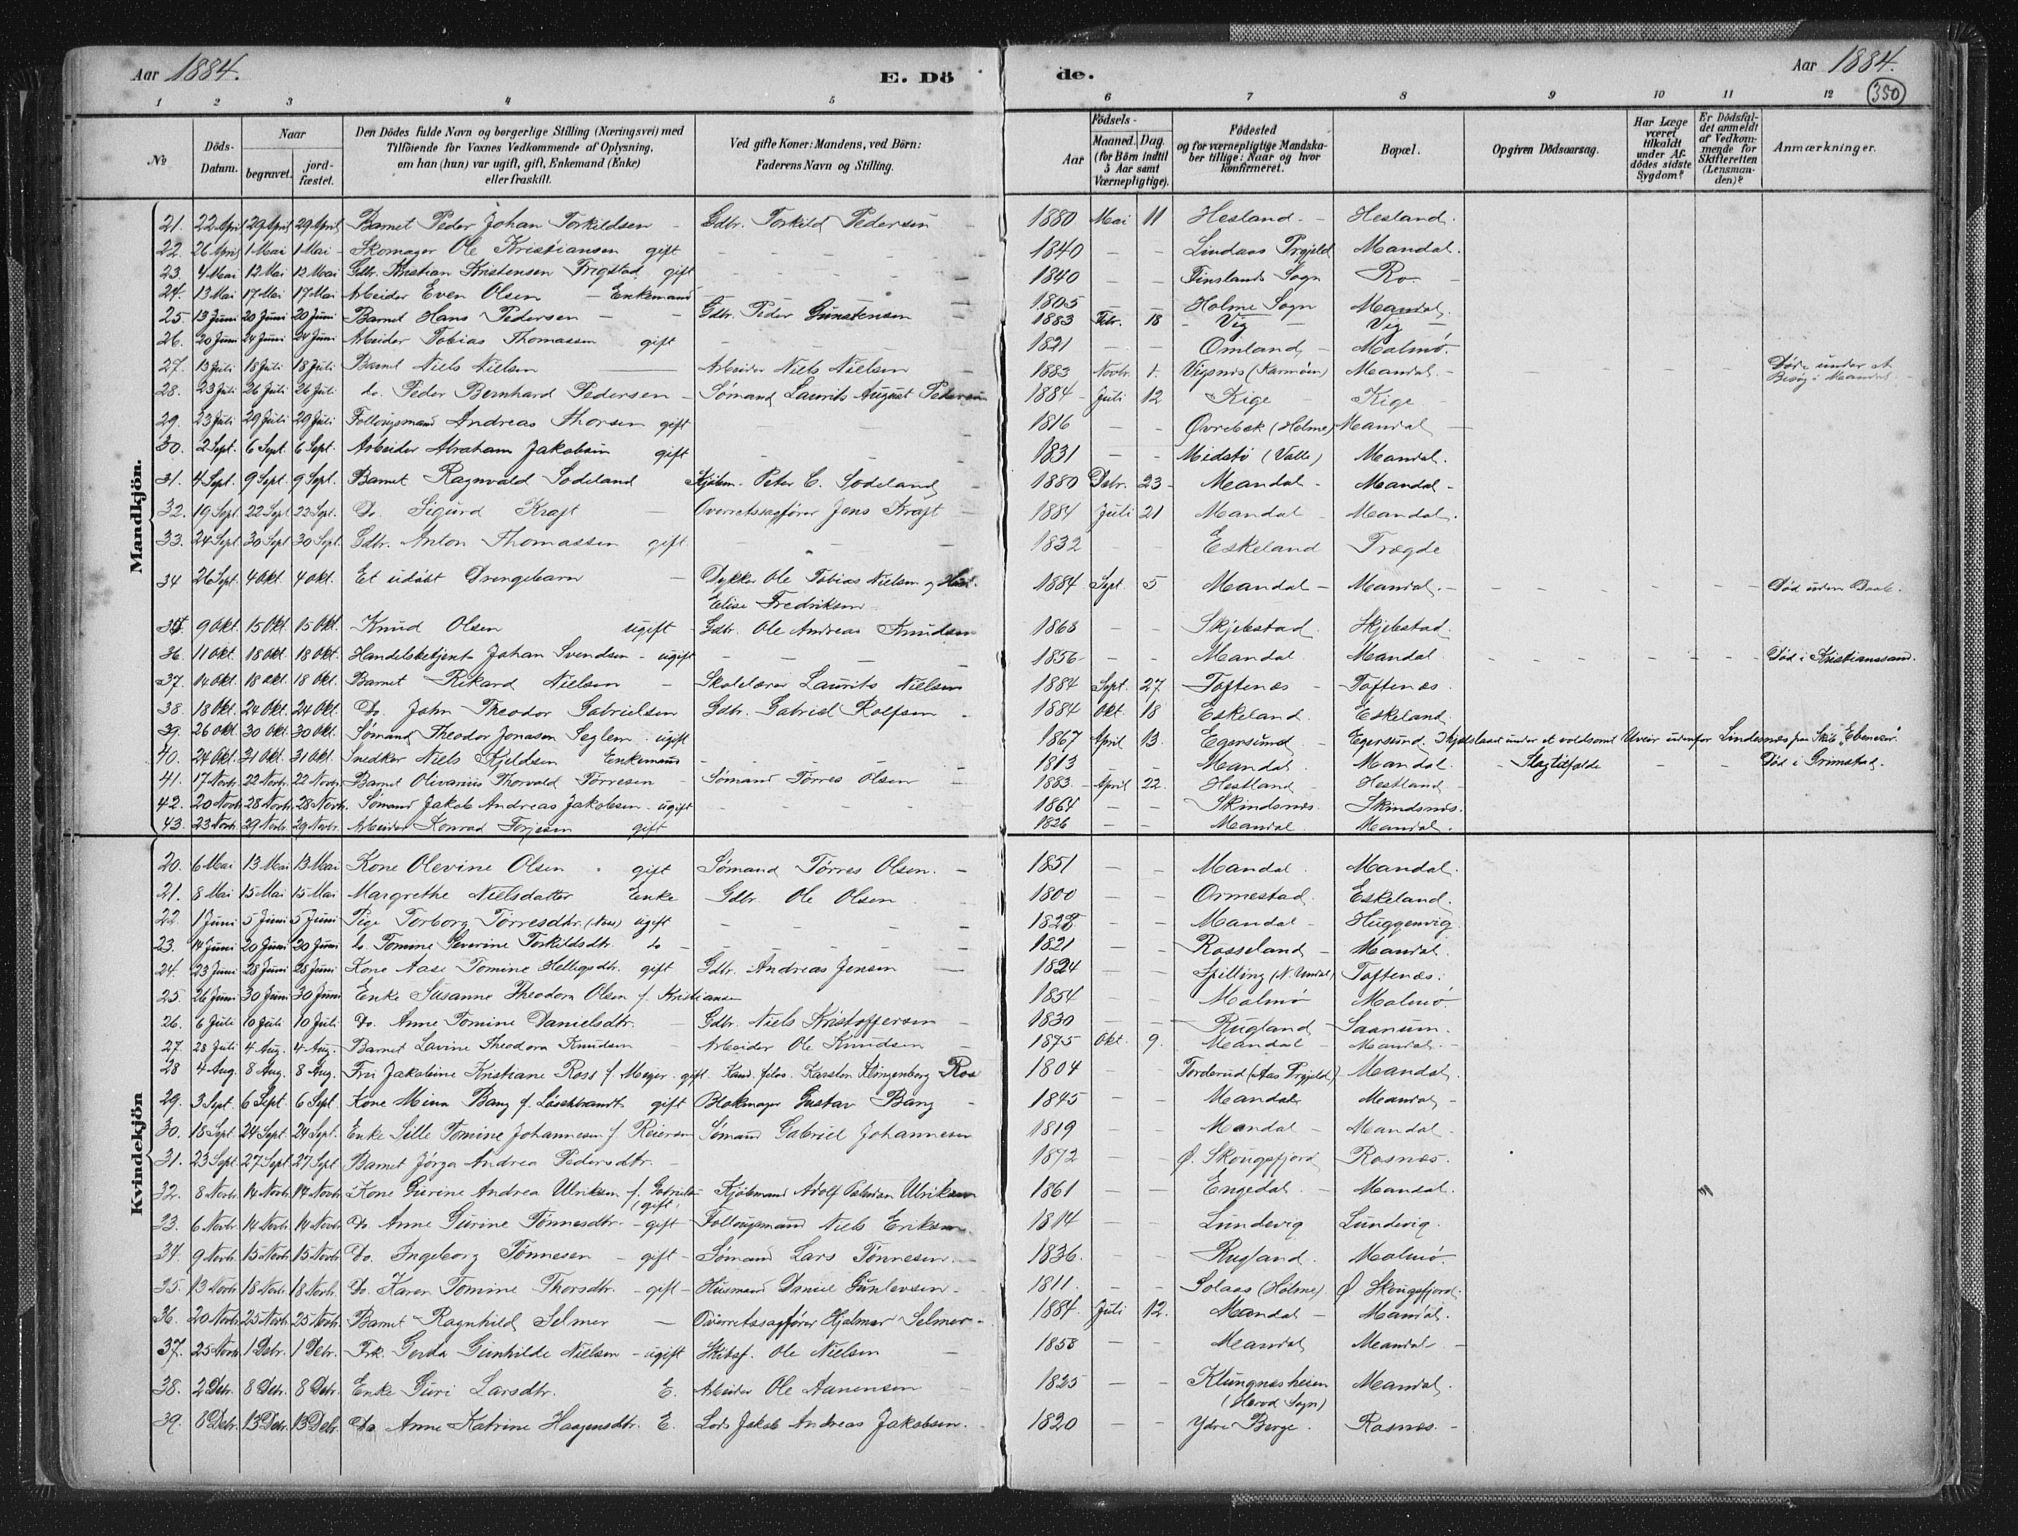 Aar 1884.
E. Dö
de.
Aar 1884.
350
1 2 3 4 5 6 7 8 9 10 11 12
№
Döds-Datum.
Naar
begravet.
jord-fæstet.
Den Dödes fulde Navn og borgerlige Stilling (Næringsvei) med
Tilföiende for Voxnes Vedkommende af Oplysning,
om han (hun) var ugift, gift, Enkemand (Enke)
eller fraskilt.
Ved gifte Koner: Mandens, ved Börn:
Faderens Navn og Stilling.
Födsels-
Aar
Maaned. Dag.
(for Börn indtil
5 Aar samt
Værnepligtige).
Födested
og for værnepligtige Mandska-
ber tillige: Naar og hvor
konfirmeret.
Bopæl.
Opgiven Dödsaarsag.
Har Læge
været
tilkaldt
under Af-
dödes sidste
Sygdom?
Er Dödsfal-
det anmeldt
af Vedkom-
mende for
Skifteretten
(Lensman-
den)?
Anmærkninger.
Mandkjön.
21. 22 April 29 April 29 April Barnet Peder Johan Torkildsen – Gdbr. Torkild Pedersen 1880 Mai 11 Hesland. – Hesland.
22. 26 April 1 Mai 1 Mai – Skomager Ole Kristiansen gift – 1840 – – Lindaas Prgjeld Mandal.
23. 4 Mai 12 Mai 12 Mai Gdbr. Kristian Kristensen Frigstad gift 1840 – – Finslands Sogn Ro. –
24. 13 Mai 17 Mai 17 Mai Arbeider Even Olsen – Enkemand – 1805 – – Holme Sogn Mandal.
25. 13 Juni 20 Juni 20 Juni Barnet Hans Pedersen – – Gdbr. Peder Gunstensen – 1883 Febr. 18 – Vig – Vig –
26. 20 Juni 24 Juni 24 Juni Arbeider Tobias Thomassen gift – 1821 – – Omland, – Malmö.
27. 13 Juli 18 Juli 18 Juli Barnet Niels Nielsen – Arbeider Niels Nielsen – 1883 Novbr. 1. Vigsnes (Karmöen) Mandal. – Død under et
Besøg i Mandal.
28. 23 Juli 26 Juli 26 Juli do. Peder Bernhard Pedersen – Sømand Laurits August Pedersen 1884 – Juli 12 Kige – Kige –
29. 23 Juli 29 Juli 29 Juli Follougsmand Andreas Thorsen gift 1816 – – Øvrebæk (Holme) Mandal –
30. 2 Sept. 6 Sept. 6 Sept. Arbeider Abraham Jakobsen gift 1831 – – Midstø (Valle) Mandal.
31. 4 Sept. 9 Sept. 9 Sept. Barnet Ragnvald Sodeland Kjøbm. Peter C. Sodeland 1880 Debr. 23 – Mandal – Mandal –
32. 19 Sept. 22 Sept. 22 Sept. Do. Sigurd Kraft – Overretssagfører Jens Kraft – 1884 Juli 21 Mandal – Mandal.
33. 24 Sept. 30 Sept. 30 Sept. Gdbr. Anton Thomassen gift – 1832 – – Eskeland Trægde
34 26 Sept. 4 Okt. 4 Okt. Et udøbt Drengebarn – Dykker Ole Tobias Nielsen og
Elise Fredriksen 1884 Sept. 5 Mandal – Mandal. – Død uden Daab.
35. 9 Okt. 15 Okt. 15 Okt. Knud Olsen ugift – Gdbr. Ole Andreas Knudsen 1868 – – Skjebstad. Skjebstad.
36. 11 Okt. 18 Okt. 18 Okt. Handelsbetjent Johan Svendsen – ugift – 1856 – – Mandal. Mandal. Død i Kristianssand.
37. 14 Okt. 18 Okt. 18 Okt. Barnet Rikard Nielsen – Skolelærer Laurits Nielsen 1884 Sept. 27 Toftenæs – Toftenæs.
38. 18 Okt. 24 Okt. 24 Okt. Do. John Theodor Gabrielsen Gdbr. Gabriel Rolfsen – 1884 Okt. 18 Eskeland. Eskeland.
39. 26 Okt. 30 Okt. 30 Okt. Sømand Theodor Jonasen Seglem. ugift 1867 April 13. Egersund – Egersund. slaaet under et voldsomt Uveir udenfor Lindesnæs fra Skib „Ebeneser“.
40. 24 Okt. 31 Okt. 31 Okt. Snedker Niels Kjeldsen Enkemand – 1813 – – Mandal. Mandal. – Slagtilfælde – – Død i Grimstad.
41. 17 Novbr. 22 Novbr. 22 Novbr. Barnet Olivarius Thorvald Tørresen – Sømand Tørres Olsen – 1883. – April 22. Hestland – Hestland –
42. 20 Novbr. 28 Novbr. 28 Novbr. Sømand Jakob Andreas Jakobsen. ugift 1864 – – Skindsnes. Skindsnes.
43. 23 Novbr. 29 Novbr. 29 Novbr. Arbeider Konrad Torjesen gift 1826 – – Mandal. Mandal.
Kvindekjön
20. 6 Mai 13 Mai 13 Mai Kone Olevine Olsen. gift Sømand Tørres Olsen. – 1851 – – Mandal. Mandal.
21. 8 Mai 15 Mai 15 Mai Margrethe Nielsdatter Enke Gdbr. Ole Olsen 1800 – – Ormestad. Eskeland.
22. 1 Juni 5 Juni 5 Juni Pige Torborg Tørresdtr. ugift 1828 – – Mandal – Huggenvig.
23. 14 Juni 20 Juni 20 Juni do. Tomine Severine Torkildsdtr. do – 1821 – – Rosseland – Mandal.
24. 23 Juni 28 Juni 28 Juni Kone Aase Tomine Helligsdtr. gift Gdbr. Andreas Jensen – 1824 – – Spilling (N. Undal) Toftenæs.
25. 26 Juni 30 Juni 30 Juni Enke Susanne Theodora Olsen f. Kristiansen 1854 – – Malmö Malmö.
26. 6 Juli 10 Juli 10 Juli Do. Anne Tomine Danielsdtr. – Gdbr. Niels Kristoffersen – 1830 – – Rugland – Saanum.
27. 28 Juli 4 Aug. 4 Aug. Barnet Lavine Theodora Knudsen – Arbeider Ole Knudsen – 1875 Okt. 9. Mandal – Mandal. –
28 4 Aug. 8 Aug. 8 Aug. Fru Jakobine Kristiane Ross f. Meyer. gift. Kand. filos. Karsten Klingenberg Ros 1804 – – Forderud (Aas Prgjeld) – Mandal.
29. 3 Sept. 6 Sept. 6 Sept. Kone Mina Bang f. gift Blokmager Gustav Bang – 1845 – – Mandal Mandal –
30. 18 Sept. 24 Sept. 24 Sept. Enke Sille Tomine Johannesen f. Reiersen Sømand Gabriel Johannesen 1819 – – Mandal – Mandal.
31. 23 Sept. 27 Sept. 27 Sept. Barnet Jørga Andrea Pedersdtr. – 1872 – – Ø. Skougsfjord Rosnæs.
32. 8 Novbr. 14 Novbr. 14 Novbr. Kone Gurine Andrea Ulriksen f. Gabrielsen (gift. Kjøbmand Adolf Ulriksen 1861 – – Engedal. – Mandal.
33. 6 Novbr. 14 Novbr. 14 Novbr. Do. Anne Gurine Tønnesdtr. – gift – Follougsmand Niels Eriksen 1814 – – Lundevig Lundevig.
34. 9 Novbr. 15 Novbr. 15 Novbr. Do. Ingeborg Tønnesen – gift – Sømand Lars Tønnesen. 1836. – – Rugland. Malmö.
35. 13 Novbr. 18 Novbr. 18 Novbr. Do. Karen Tomine Thorsdtr. – gift – Husmand Daniel Gunlevsen – 1811. – – Solaas (Holme) Ø Skougsfjord.
36. 20 Novbr. 25 Novbr. 25 Novbr. Barnet Ragnhild Selmer – Overretssagfører Hjalmar Selmer – 1884. Juli 12. Mandal – Mandal.
37. 25 Novbr. 1 Debr. 1 Debr. Frk. Gerda Gunhilde Nielsen – ugift Skibsf. Ole Nielsen – 1858 – – Mandal Mandal. –
38. 2 Debr. 8 Debr. 8 Debr. Enke Guri Larsdtr. E. Arbeider Ole Aanensen – 1825 – – Klungnesheien
(Herod Sogn) Mandal.
39. 8 Debr. 13 Debr. 13 Debr. Do. Anne Katrine Haagensdtr. E. Lods Jakob Andreas Jakobsen. 1820 – – Ydre Berge. Rosnæs. –